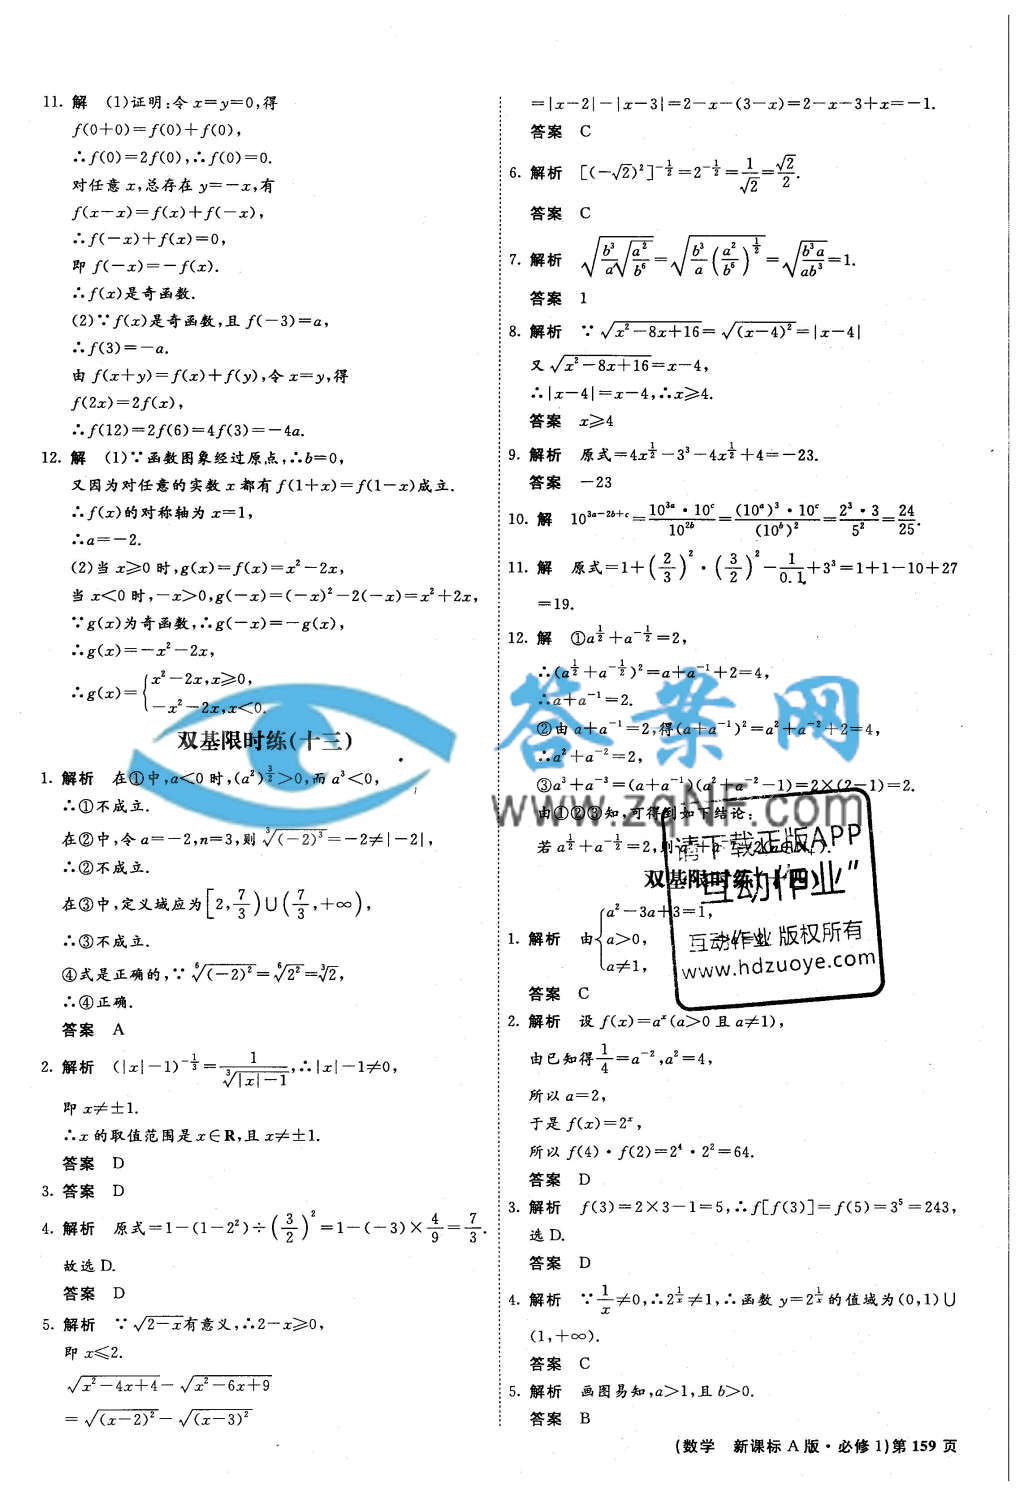 11. 解 (1)证明:令 x=y=0,得
f(0+0)=f(0)+f(0),
∴f(0)=2f(0),∴f(0)=0.
对任意 x,总存在 y=-x,有
f(x-x)=f(x)+f(-x),
∴f(-x)+f(x)=0,
即 f(-x)=-f(x).
∴f(x)是奇函数.
(2)∵f(x)是奇函数,且 f(-3)=a,
∴f(3)=-a.
由 f(x+y)=f(x)+f(y),令 x=y,得
f(2x)=2f(x),
∴f(12)=2f(6)=4f(3)=-4a.
12. 解 (1)∵函数图象经过原点,∴b=0,
又因为对任意的实数 x 都有 f(1+x)=f(1-x)成立.
∴f(x)的对称轴为 x=1,
∴a=-2.
(2)当 x⩾0 时,g(x)=f(x)=x²-2x,
当 x<0 时,-x>0,g(-x)=(-x)²-2(-x)=x²+2x,
∵g(x)为奇函数,∴g(-x)=-g(x),
∴g(x)=-x²-2x,
∴g(x)={x²-2x,x⩾0,
-x²-2x,x<0.
双基限时练(十三)
1. 解析 在①中,a<0 时,(a²)^{3/2}>0,而 a³<0,
∴①不成立.
在②中,令 a=-2,n=3,则 ∛(-2)³=-2≠|-2|,
∴②不成立.
在③中,定义域应为[2,7/3)∪(7/3,+∞),
∴③不成立.
④式是正确的,∵⁶√(-2)²=⁶√2²=∛2,
∴④正确.
答案 A
2. 解析 (|x|-1)^{-1/3}=1/∛(|x|-1),∴|x|-1≠0,
即 x≠±1.
∴x 的取值范围是 x∈R,且 x≠±1.
答案 D
3. 答案 D
4. 解析 原式=1-(1-2²)÷(3/2)²=1-(-3)×4/9=7/3.
故选 D.
答案 D
5. 解析 ∵√(2-x)有意义,∴2-x⩾0,
即 x⩽2.
√(x²-4x+4)-√(x²-6x+9)
=√(x-2)²-√(x-3)²
=|x-2|-|x-3|=2-x-(3-x)=2-x-3+x=-1.
答案 C
6. 解析 [(-√2)²]^{-1/2}=2^{-1/2}=1/√2=√2/2.
答案 C
7. 解析 √(b³/a √(a²/b⁶))=√(b³/a (a²/b⁶)^{1/2})=√(b³a/ab³)=1.
答案 1
8. 解析 ∵√(x²-8x+16)=√(x-4)²=|x-4|
又√(x²-8x+16)=x-4,
∴|x-4|=x-4,∴x⩾4.
答案 x⩾4
9. 解析 原式=4x^{1/2}-3³-4x^{1/2}+4=-23.
答案 -23
10. 解 10^{3a-2b+c}=10^{3a}·10^c/10^{2b}=(10^a)³·10^c/(10^b)²=2³·3/5²=24/25.
11. 解 原式=1+(2/3)²·(3/2)²-1/0.1+3³=1+1-10+27
=19.
12. 解 ①a^{1/2}+a^{-1/2}=2,
∴(a^{1/2}+a^{-1/2})²=a+a⁻¹+2=4,
∴a+a⁻¹=2.
②由 a+a⁻¹=2,得(a+a⁻¹)²=a²+a⁻²+2=4,
∴a²+a⁻²=2,
③a³+a⁻³=(a+a⁻¹)(a²+a⁻²-1)=2×(2-1)=2.
由①②③知,可得到如下结论:
若 a^{1/2}+a^{-1/2}=2,则
双基限时练(十四)
1. 解析 由{a²-3a+3=1,
a>0,
a≠1,
答案 C
2. 解析 设 f(x)=a^x(a>0 且 a≠1),
由已知得1/4=a⁻²,a²=4,
所以 a=2,
于是 f(x)=2^x,
所以 f(4)·f(2)=2⁴·2²=64.
答案 D
3. 解析 f(3)=2×3-1=5,∴f[f(3)]=f(5)=3⁵=243,
选 D.
答案 D
4. 解析 ∵1/x≠0,∴2^{1/x}≠1,∴函数 y=2^{1/x}的值域为(0,1)∪
(1,+∞).
答案 C
5. 解析 画图易知,a>1,且 b>0.
答案 B
(数学 新课标 A 版·必修 1)第 159 页
答案网
www.zqNF.com
请下载正版APP
“互动作业”
互动作业 版权所有
www.hdzuoye.com